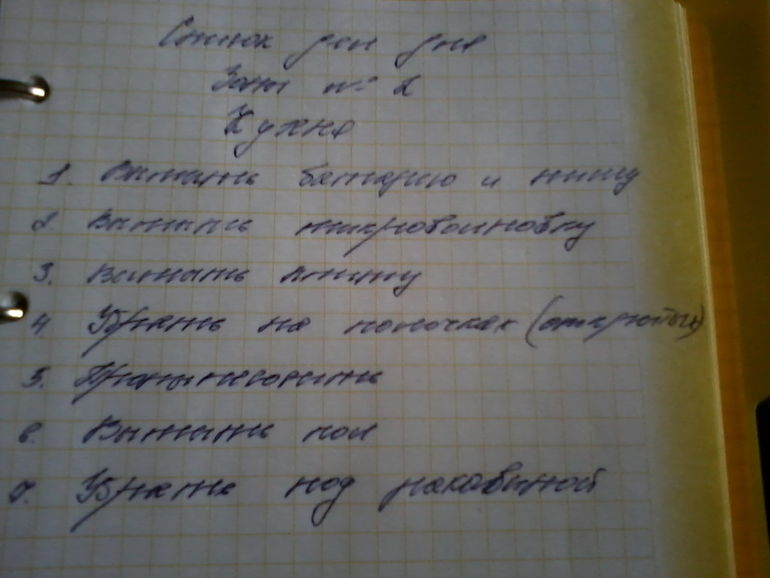 Список дел для
Зоны № 2
Кухня
1. Вымыть батарею и нишу
2. Вымыть микроволновку
3. Вымыть плиту
4. Убрать на полочках (открытых)
5. Пропылесосить
6. Вымыть пол
7. Убрать под раковиной